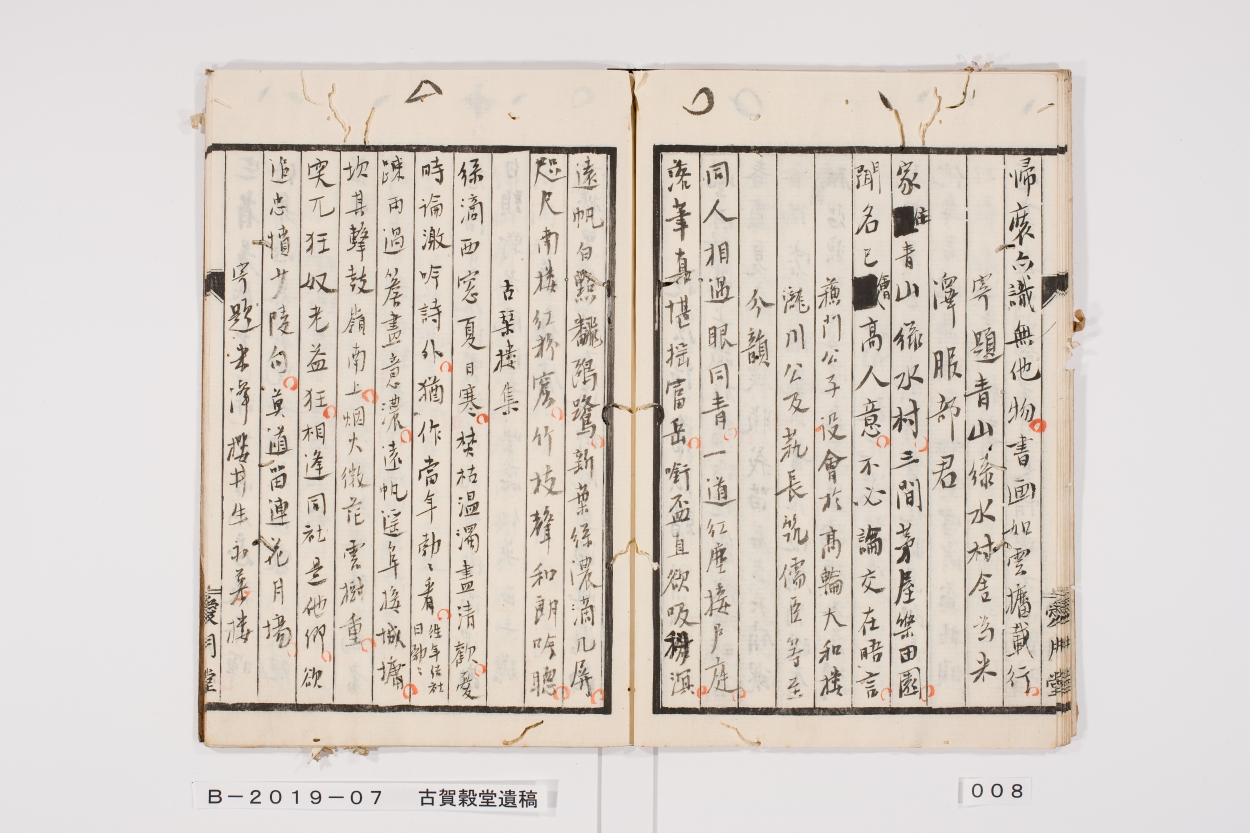 帰裝只識無他物書画如雲擔載行
寄題青山緑水村舎為米
澤服部君
家住青山緑水村三間茅屋樂田園
聞名已繪高人意不必論交在晤言
蘓門公子設會於高輪大和楼
瀧川公及執長筑儒臣等至
分韻
同人相遇眼同青一道紅塵接戸庭
落筆真堪揺富岳銜盃直欲吸溟
遠帆白點鸂鶒鷺新葉緑濃滴几屏
咫尺南楼紅粉窓竹枝聲和朗吟聴
古琹楼集
緑滴西窓夏日寒焚枯温濁盡清歡憂
時論激吟詩外猶作當年勃〻看 往年結社日勃〻
疎雨過簷畫意濃遠帆遥阜接城墉
坎其擊鼓嶺南上烟火微茫雲樹重
突兀狂奴老益狂相逢同社是他郷欲
追忠憤少陵句莫道留連花月場
寄題米澤櫻井生永慕楼
愛月堂
愛月堂
B－２０１９－０７ 古賀穀堂遺稿
００８